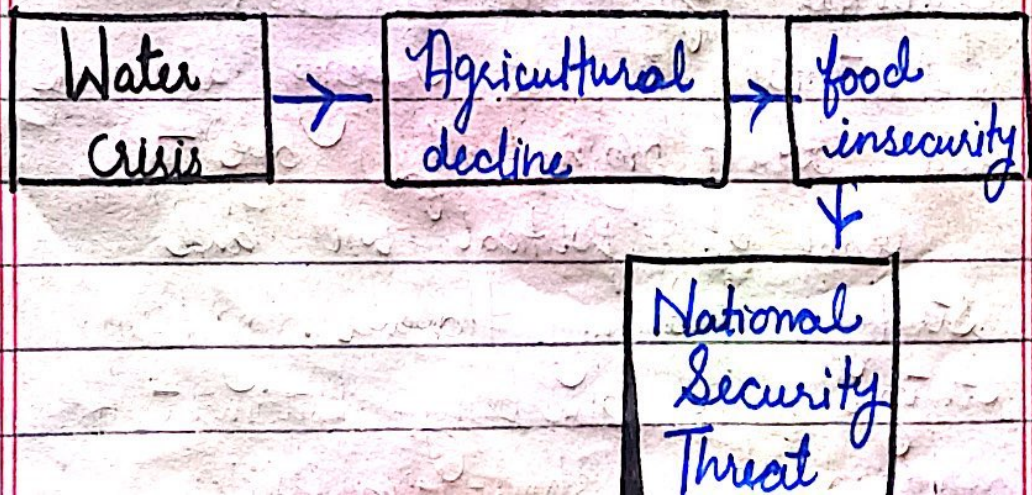 Water
Crisis
Agricultural
decline
food
insecurity
National
Security
Threat